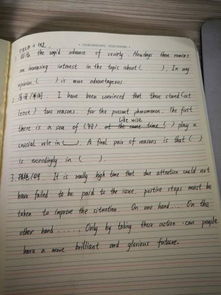 the rapid advance of society. Nowdays there remains
an increasing interest in the topic about ( ). In my
opinion ( ) is more advantageous.
2. I have been convinced that there stand (at
least) two reasons for the present phenomenon. The first
Like wise
there is a sea of ( ) at the same time ( ) play a
crucial role in ( ). A final pair of reasons is that ( )
is exceedingly in ( ).
3. It is really high time that due attention could not
have failed to be paid to the issue, positive steps must be
taken to improve the situation. On one hand... On the
other hand ...... Only by taking these action can people
have a more brilliant and glorious fortune.